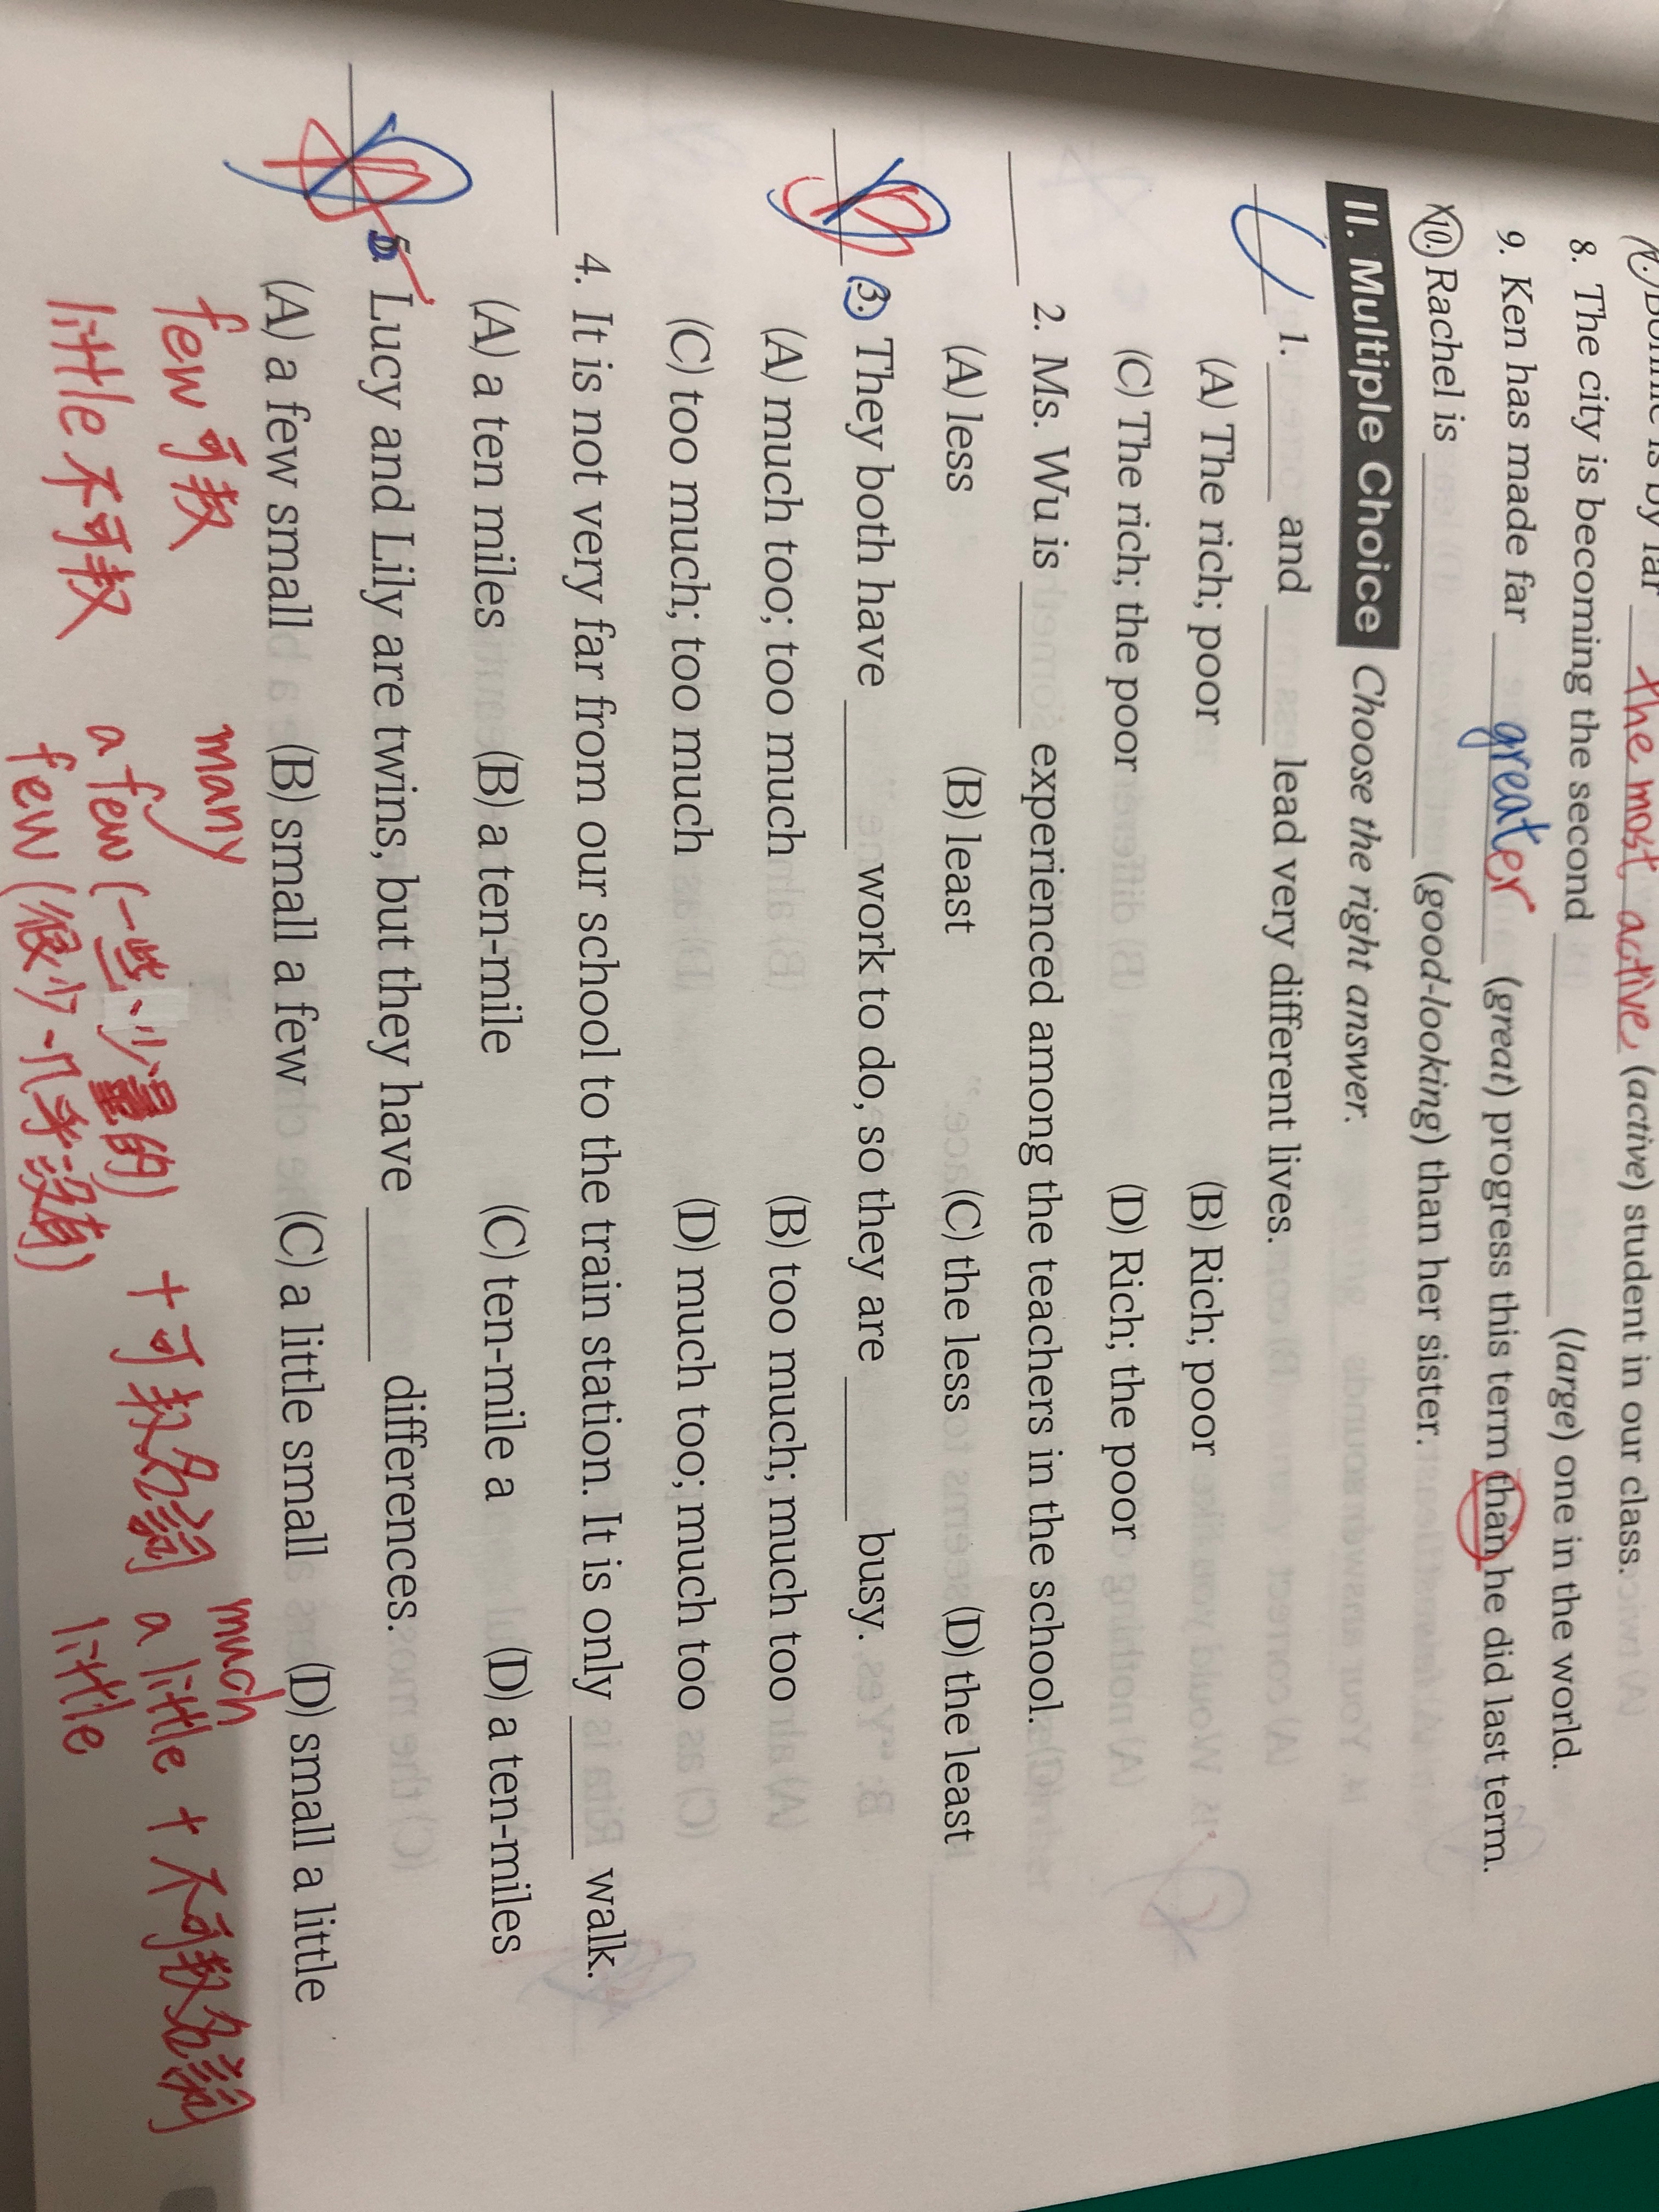 is by far the most active (active) student in our class.
8. The city is becoming the second ______ (large) one in the world.
9. Ken has made far greater (great) progress this term than he did last term.
10. Rachel is ______ (good-looking) than her sister.
II. Multiple Choice Choose the right answer.
C 1. ______ and ______ lead very different lives.
(A) The rich; poor (B) Rich; poor
(C) The rich; the poor (D) Rich; the poor
2. Ms. Wu is ______ experienced among the teachers in the school.
(A) less (B) least (C) the less (D) the least
3. They both have ______ work to do, so they are ______ busy.
(A) much too; too much (B) too much; much too
(C) too much; too much (D) much too; much too
4. It is not very far from our school to the train station. It is only ______ walk.
(A) a ten miles (B) a ten-mile (C) ten-mile a (D) a ten-miles
5. Lucy and Lily are twins, but they have ______ differences.
(A) a few small (B) small a few (C) a little small (D) small a little
few 可数 many much
a few (一些、少量的) + 可数名詞 a little + 不可数名詞
little 不可数 few (很少、几乎没有) little